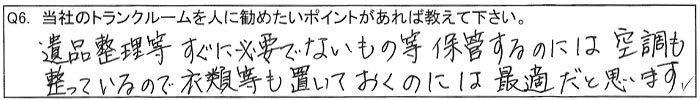 Q6. 当社のトランクルームを人に勧めたいポイントがあれば教えて下さい。
遺品整理等 すぐに必要でないもの等 保管するのには 空調も
整っているので衣類等も置いておくのには 最適だと思います。